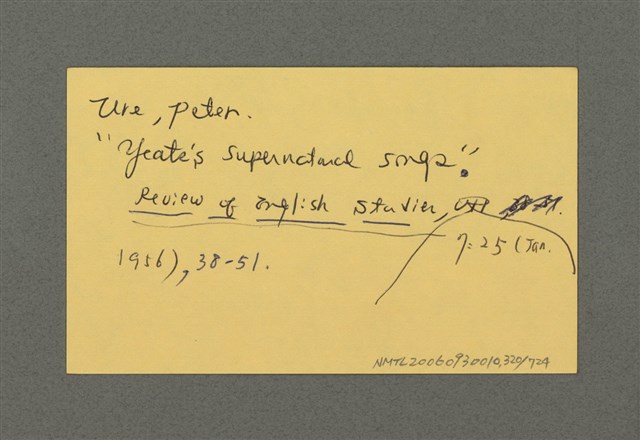 Ure, Peter.
"Yeats's supernatural songs".
Review of English Studies,
7:25 (Jan.
1956), 38-51.
NMTL20060930010,320/724